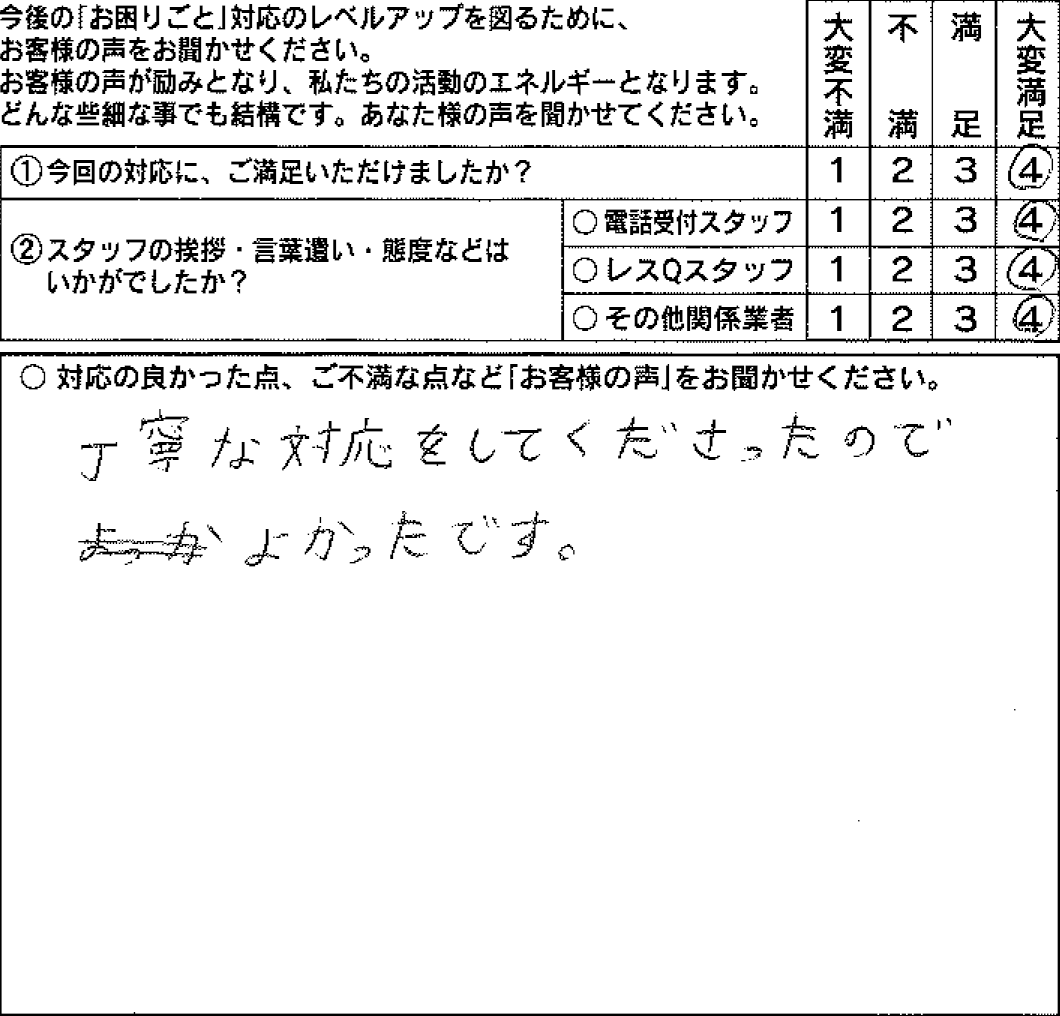 今後の「お困りごと」対応のレベルアップを図るために、
お客様の声をお聞かせください。
お客様の声が励みとなり、私たちの活動のエネルギーとなります。
どんな些細な事でも結構です。あなた様の声を聞かせてください。
大変不満 不満 満足 大変満足
①今回の対応に、ご満足いただけましたか？ 1 2 3 4
②スタッフの挨拶・言葉遣い・態度などは
いかがでしたか？
○電話受付スタッフ 1 2 3 4
○レスQスタッフ 1 2 3 4
○その他関係業者 1 2 3 4
○対応の良かった点、ご不満な点など「お客様の声」をお聞かせください。
丁寧な対応をしてくださったので
よっか よかったです。